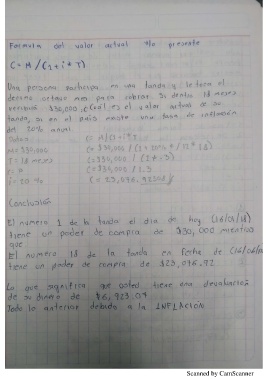 Formula del valor actual Y/o presente
C = M / (1 + i * T)
Una persona participa en una tanda y le toca el
décimo octavo mes para cobrar. Si dentro 18 meses
recibirá $30,000 ¿Cuál es el valor actual de su
tanda, si en el país existe una tasa de inflación
del 20% anual.
Datos C = M / (1 + i * T)
M = $30,000 C = $30,000 / (1 + 20% / 12 * 18)
T = 18 meses C = $30,000 / (1 + .3)
C = $30,000 / 1.3
i = 20 % C = 23,076.92308
Conclusión
El número 1 de la tanda el día de hoy (16/01/18)
tiene un poder de compra de $30,000 mientras
que
El número 18 de la tanda en fecha de
tiene un poder de compra de $23,076.92
Lo que significa que usted tiene una devaluación
de su dinero de $6,923.07
Todo lo anterior debido a la INFLACIÓN
Scanned by CamScanner